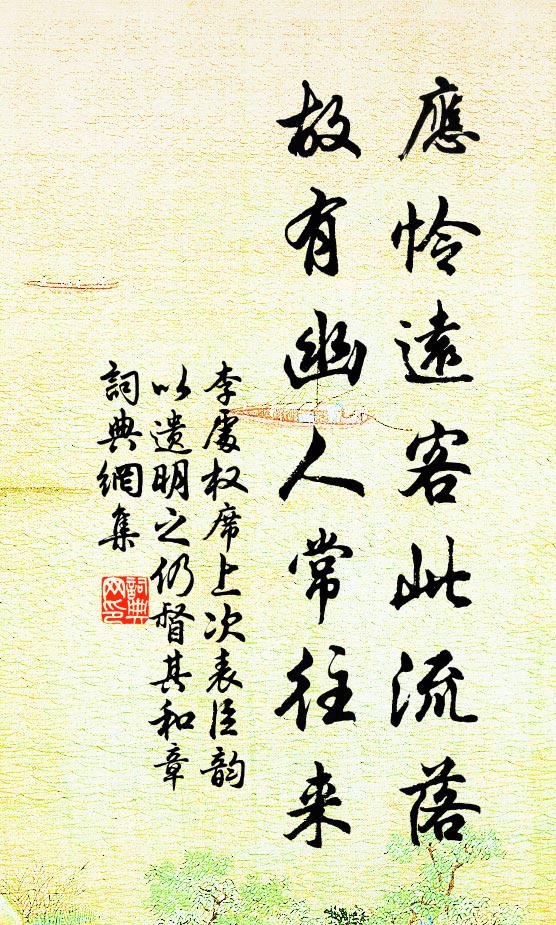 應怜遠客此流落
故有幽人常往来
李處权席上次表臣韵
以遗明之仍督其和章
詞典網集
詞典
网印